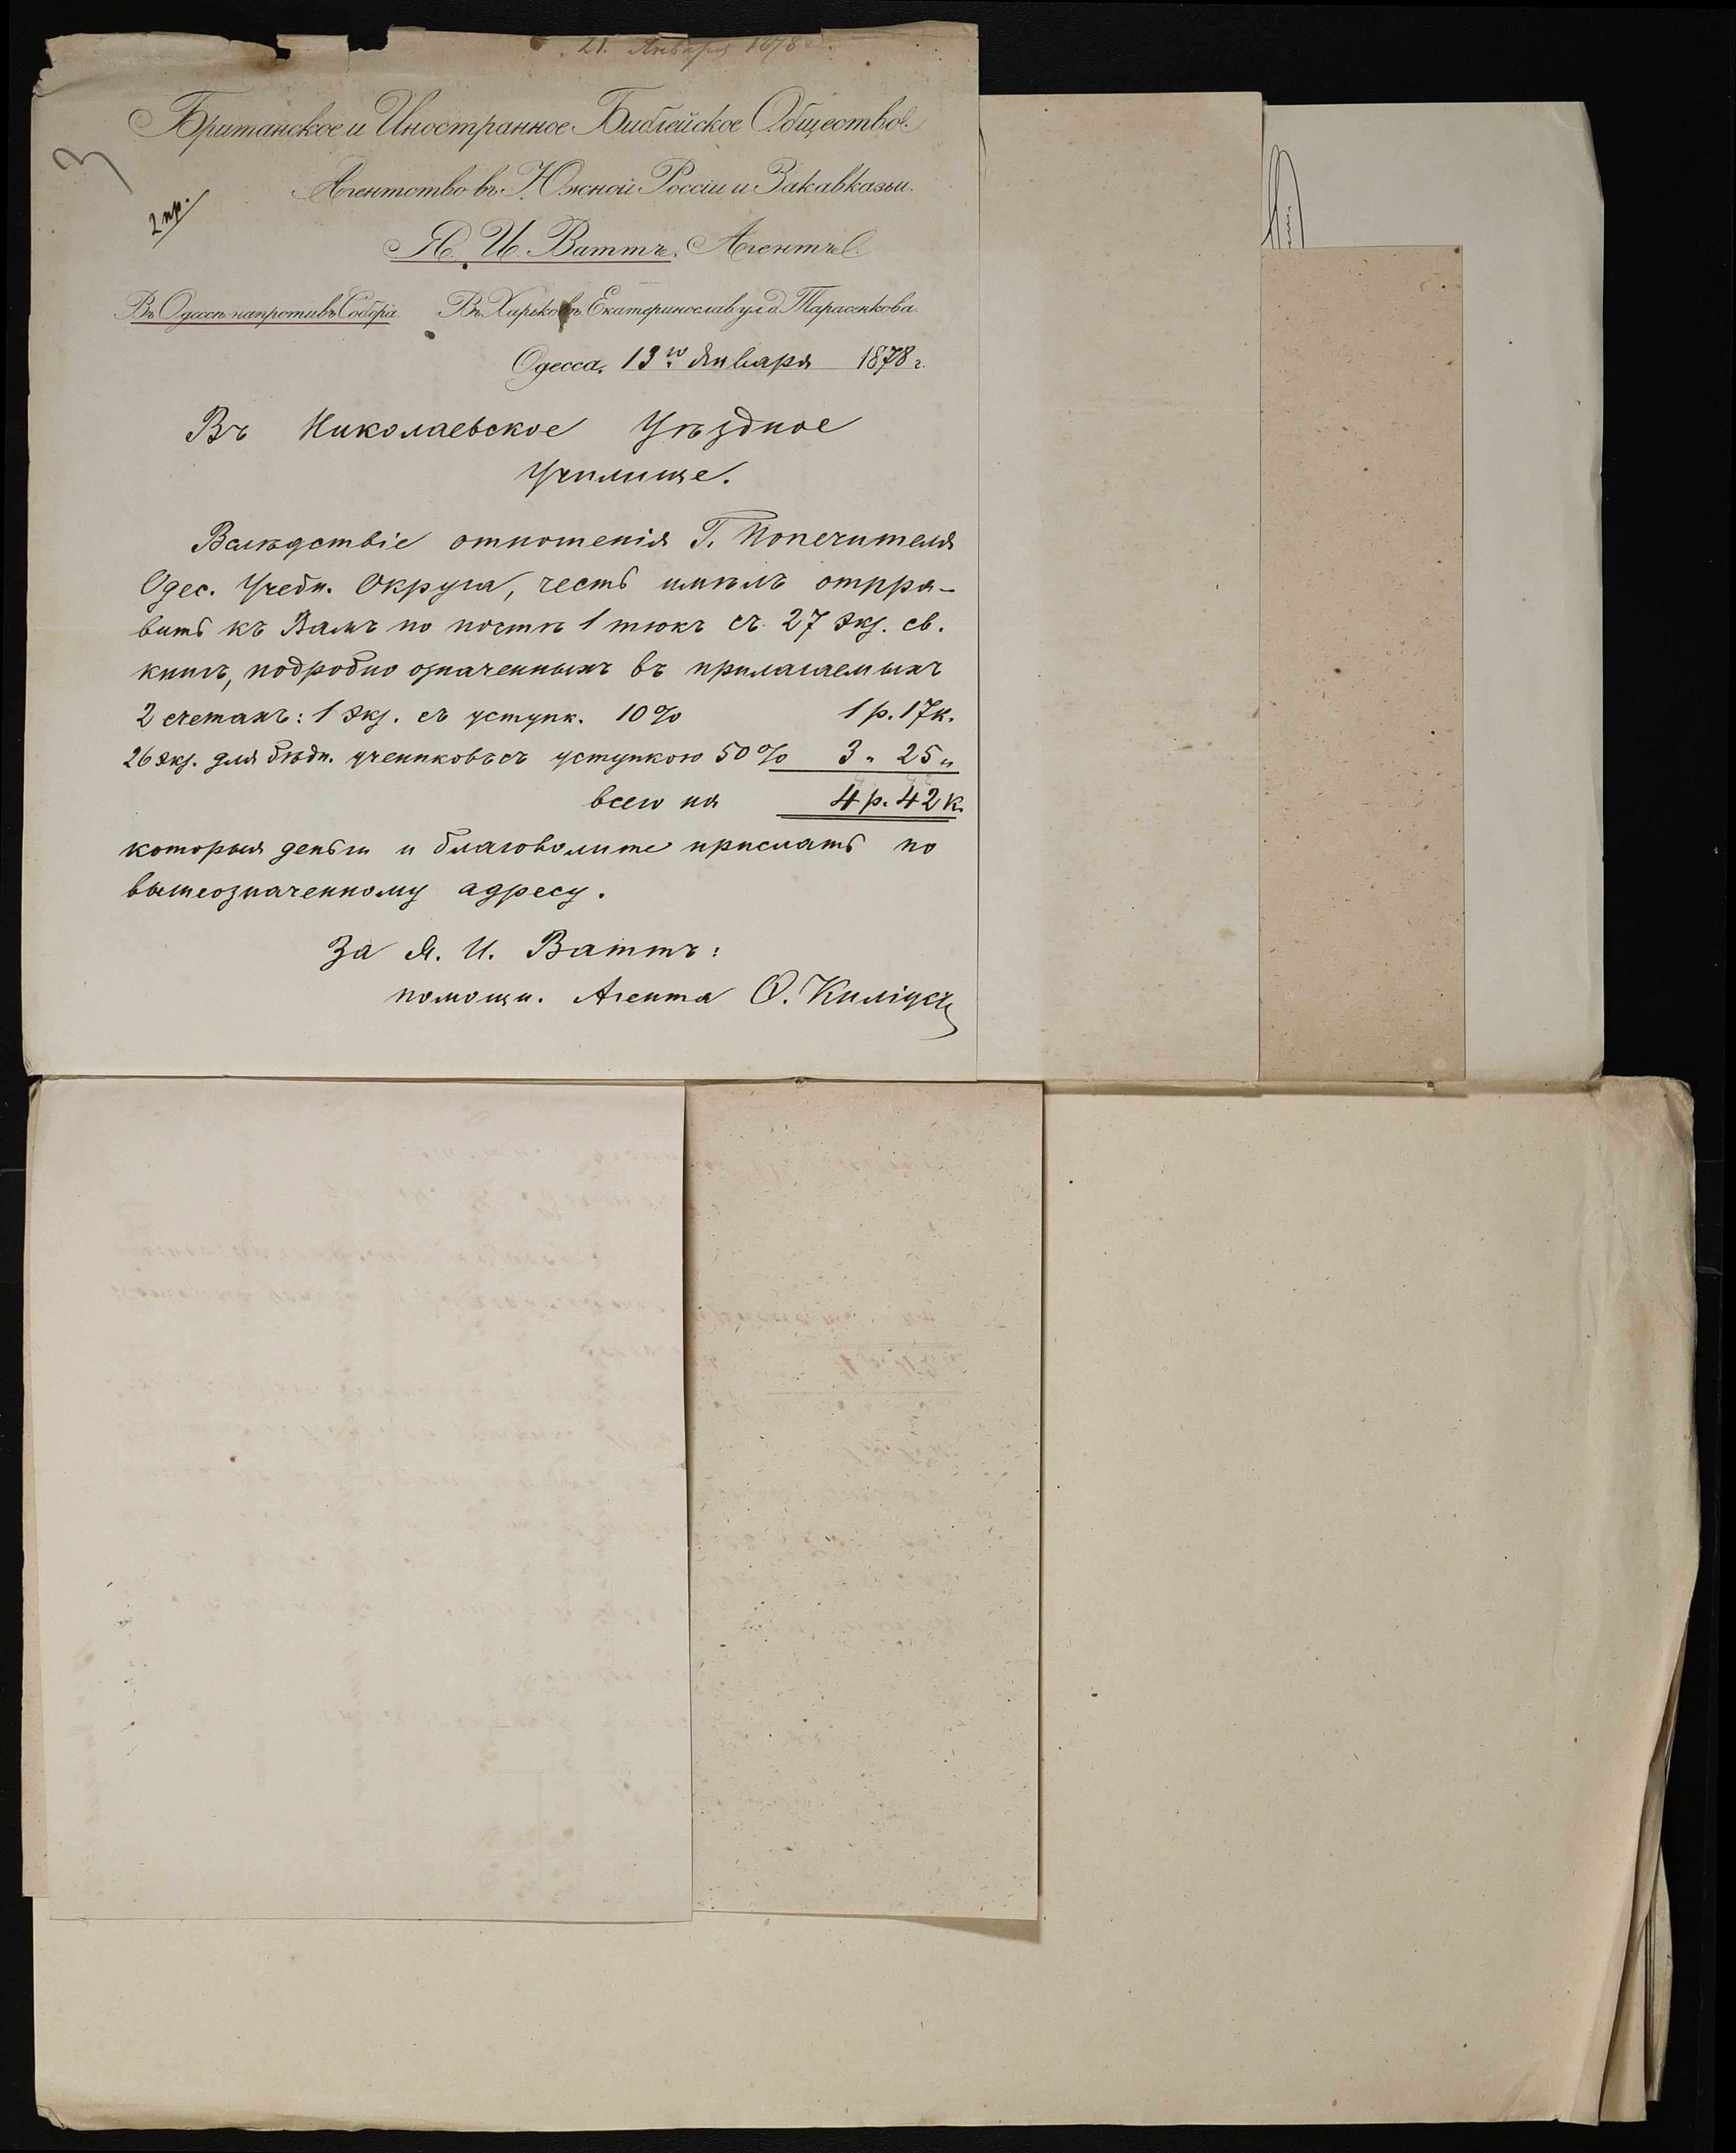 21. Января 1878 г.
Британское и Иностранное Библейское Общество.
3
Агентство въ Южной Россіи и Закавказьи.
2 пр.
Я. И. Ваттъ, Агентъ.
Въ Одессѣ напротивъ Собора. Въ Харьковѣ Екатеринослав ул. д. Тарасенкова.
Одесса, 13го Января 1878 г.
Въ Николаевское Уѣздное
Училище.
Вслѣдствіе отношенія Г. Попечителя
Одес. Учебн. Округа, честь имѣлъ отпра-
вить къ Вамъ по почтѣ 1 тюкъ съ 27 экз. св.
книгъ, подробно означенныхъ въ прилагаемыхъ
2 счетахъ: 1 экз. съ уступк. 10% 1 р. 17 к.
26 экз. для бѣдн. учениковъ съ уступкою 50% 3 " 25 "
всего на 4 р. 42 к.
которыя деньги и благоволите прислать по
вышеозначенному адресу.
За Я. И. Ваттъ:
помощн. Агента